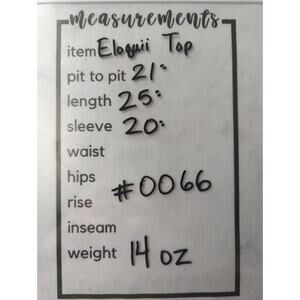 measurements
item Eloquii Top
pit to pit 21"
length 25"
sleeve 20"
waist
hips
#0066
rise
inseam
weight 14 oz